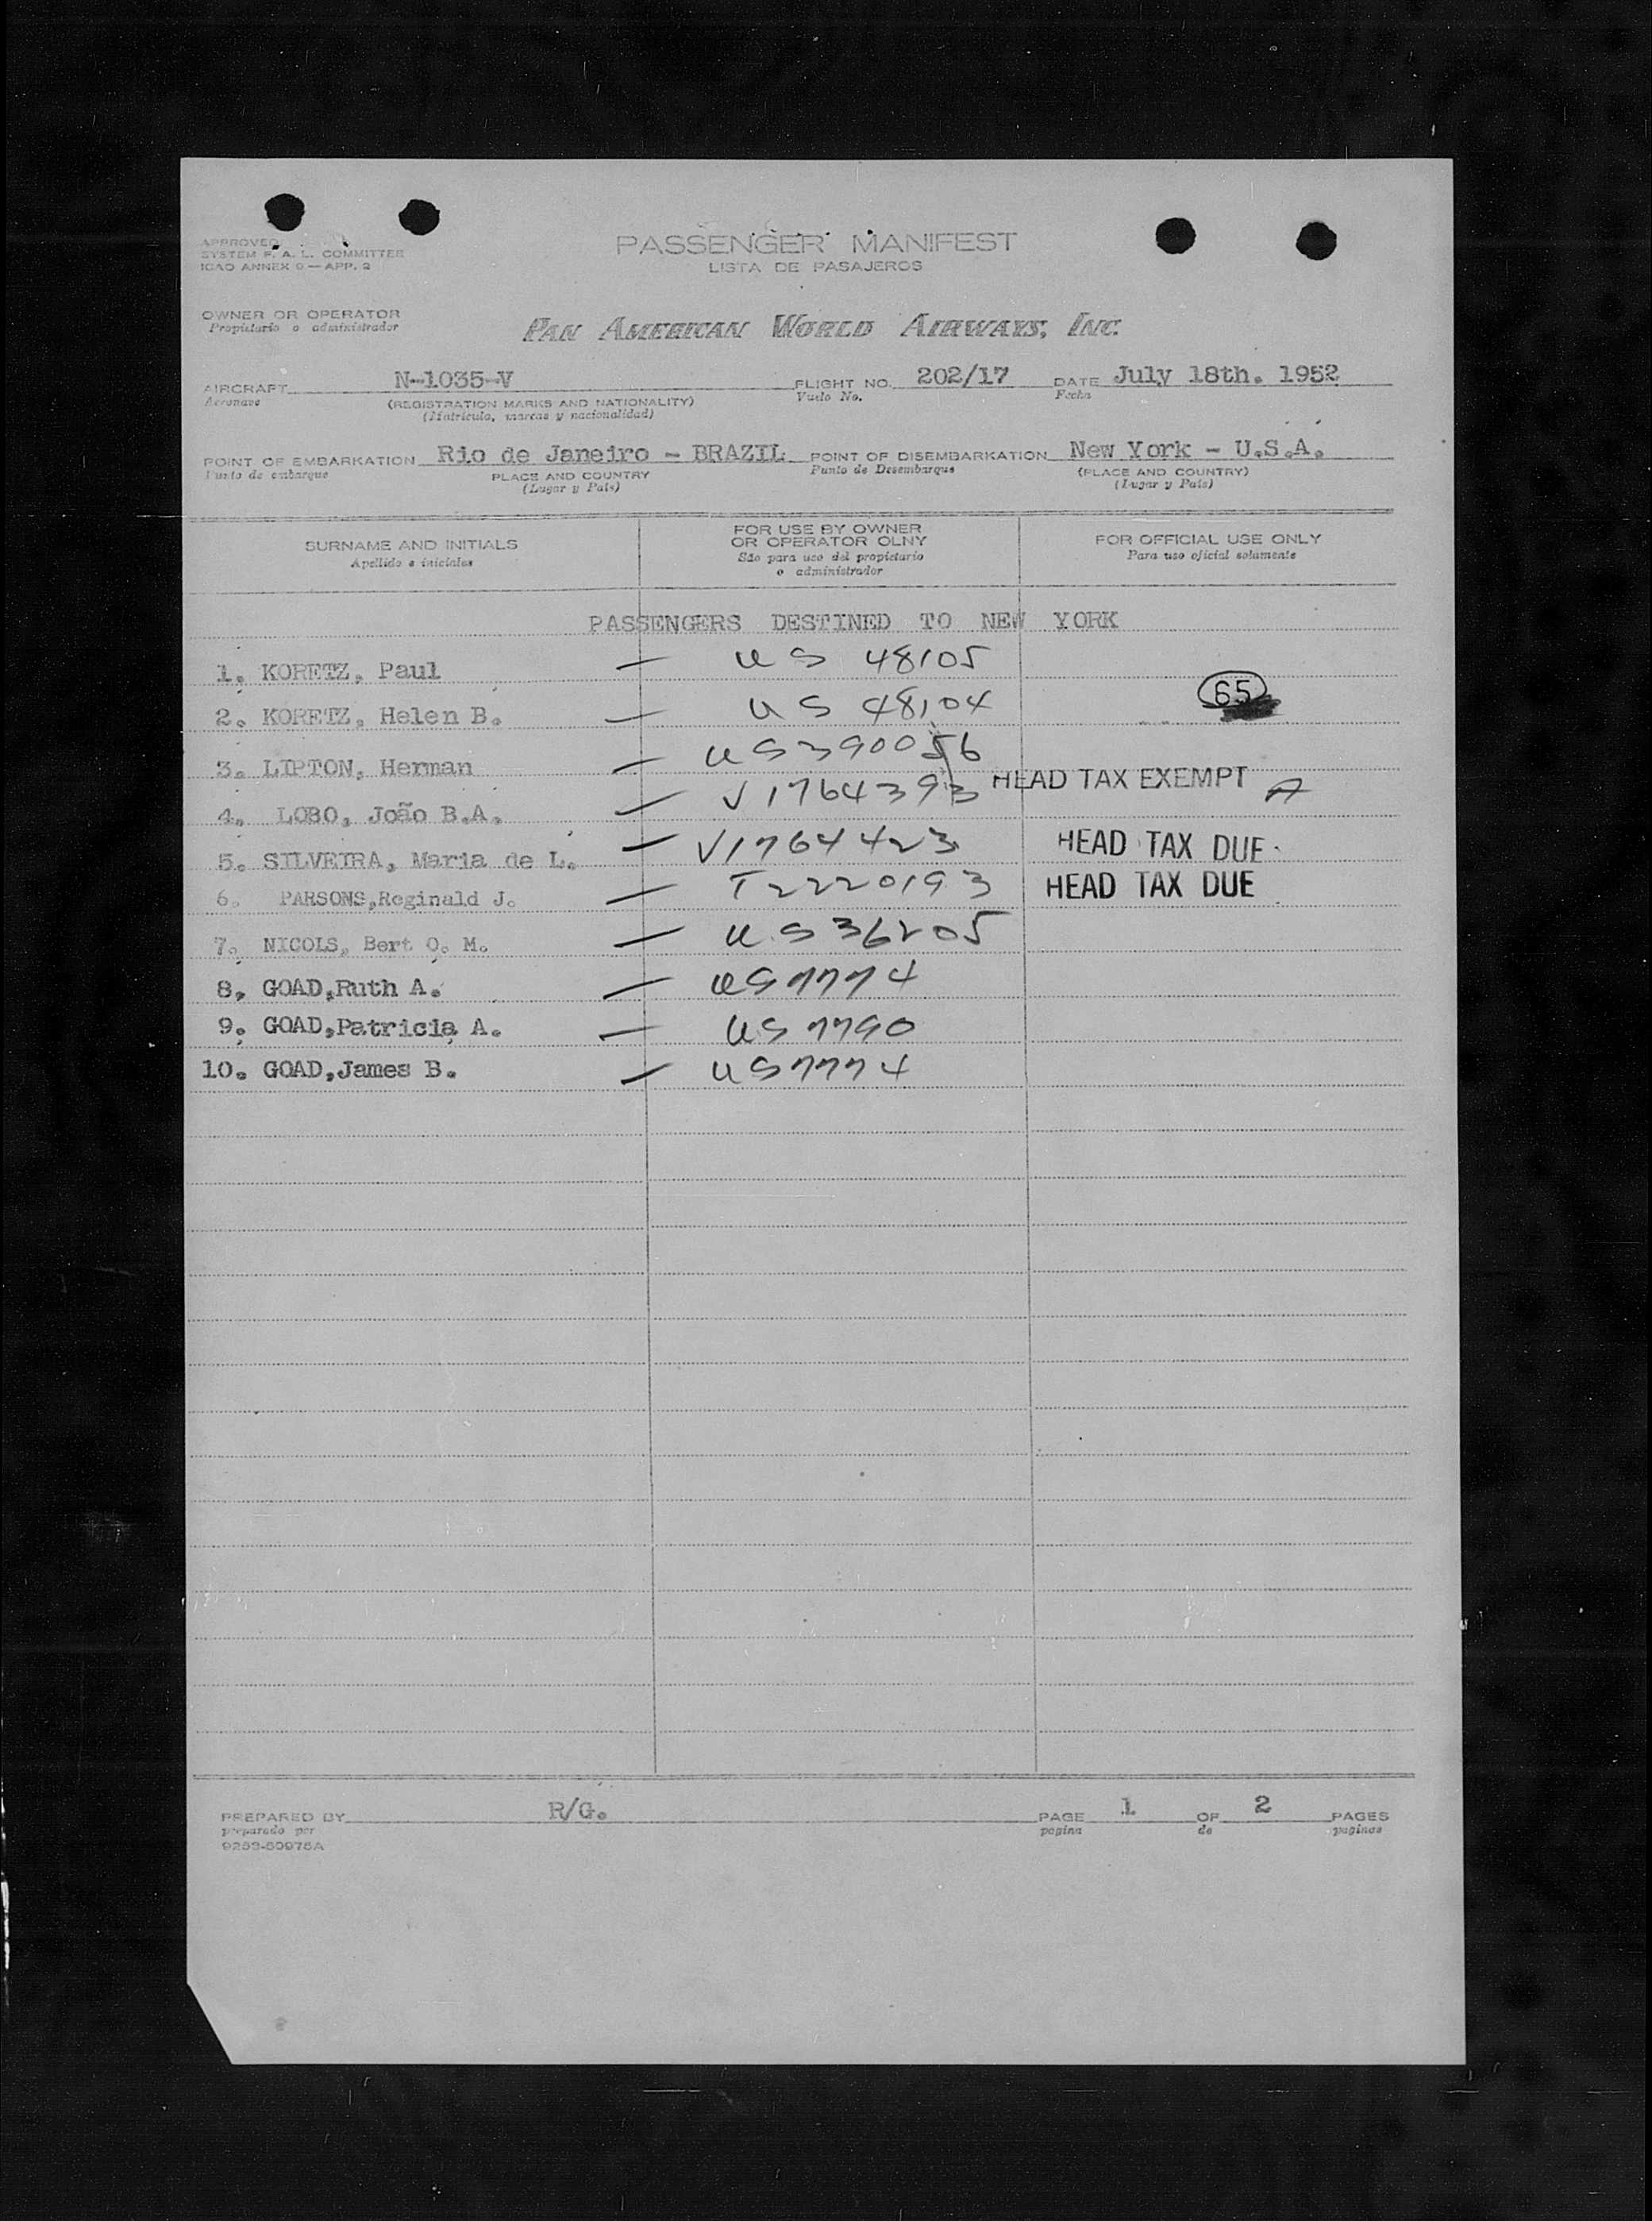 APPROVED
SYSTEM F. A. L. COMMITTEE
ICAO ANNEX 9 — APP. 2
PASSENGER MANIFEST
LISTA DE PASAJEROS
OWNER OR OPERATOR
Propietario o administrador
PAN AMERICAN WORLD AIRWAYS, INC.
AIRCRAFT N-1035-V FLIGHT NO. 202/17 DATE July 18th. 1952
Aeronave (REGISTRATION MARKS AND NATIONALITY) Vuelo No. Fecha
(Matricula, marcas y nacionalidad)
POINT OF EMBARKATION Rio de Janeiro - BRAZIL POINT OF DISEMBARKATION New York - U.S.A.
Punto de embarque PLACE AND COUNTRY Punto de Desembarque (PLACE AND COUNTRY)
(Lugar y País) (Lugar y País)
SURNAME AND INITIALS
Apellido e iniciales
FOR USE BY OWNER
OR OPERATOR OLNY
Sáo para uso del propietario
o administrador
FOR OFFICIAL USE ONLY
Para uso oficial solamente
PASSENGERS DESTINED TO NEW YORK
1. KORETZ, Paul — US 48105
2. KORETZ, Helen B. — US 48104 65
3. LIPTON, Herman — US390056
4. LOBO, João B.A. — V1764393 HEAD TAX EXEMPT
5. SILVEIRA, Maria de L. — V1764423 HEAD TAX DUE
6. PARSONS,Reginald J. — T2220193 HEAD TAX DUE
7. NICOLS, Bert O. M. — US 36205
8. GOAD,Ruth A. — US7774
9. GOAD,Patricia A. — US 7790
10. GOAD,James B. — US7774
PREPARED BY R/G. PAGE 1 OF 2 PAGES
preparado por pagina de paginas
9253-50975A